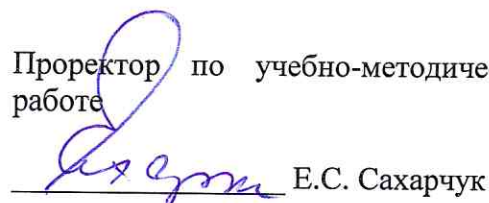 Проректор по учебно-методиче
работе
Е.С. Сахарчук